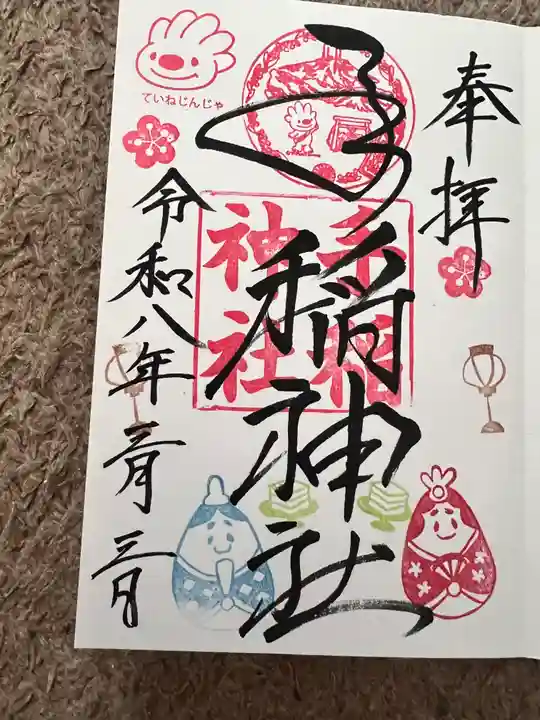 奉拝
手稲神社
手稲
神社
ていねじんじゃ
令和八年三月三日